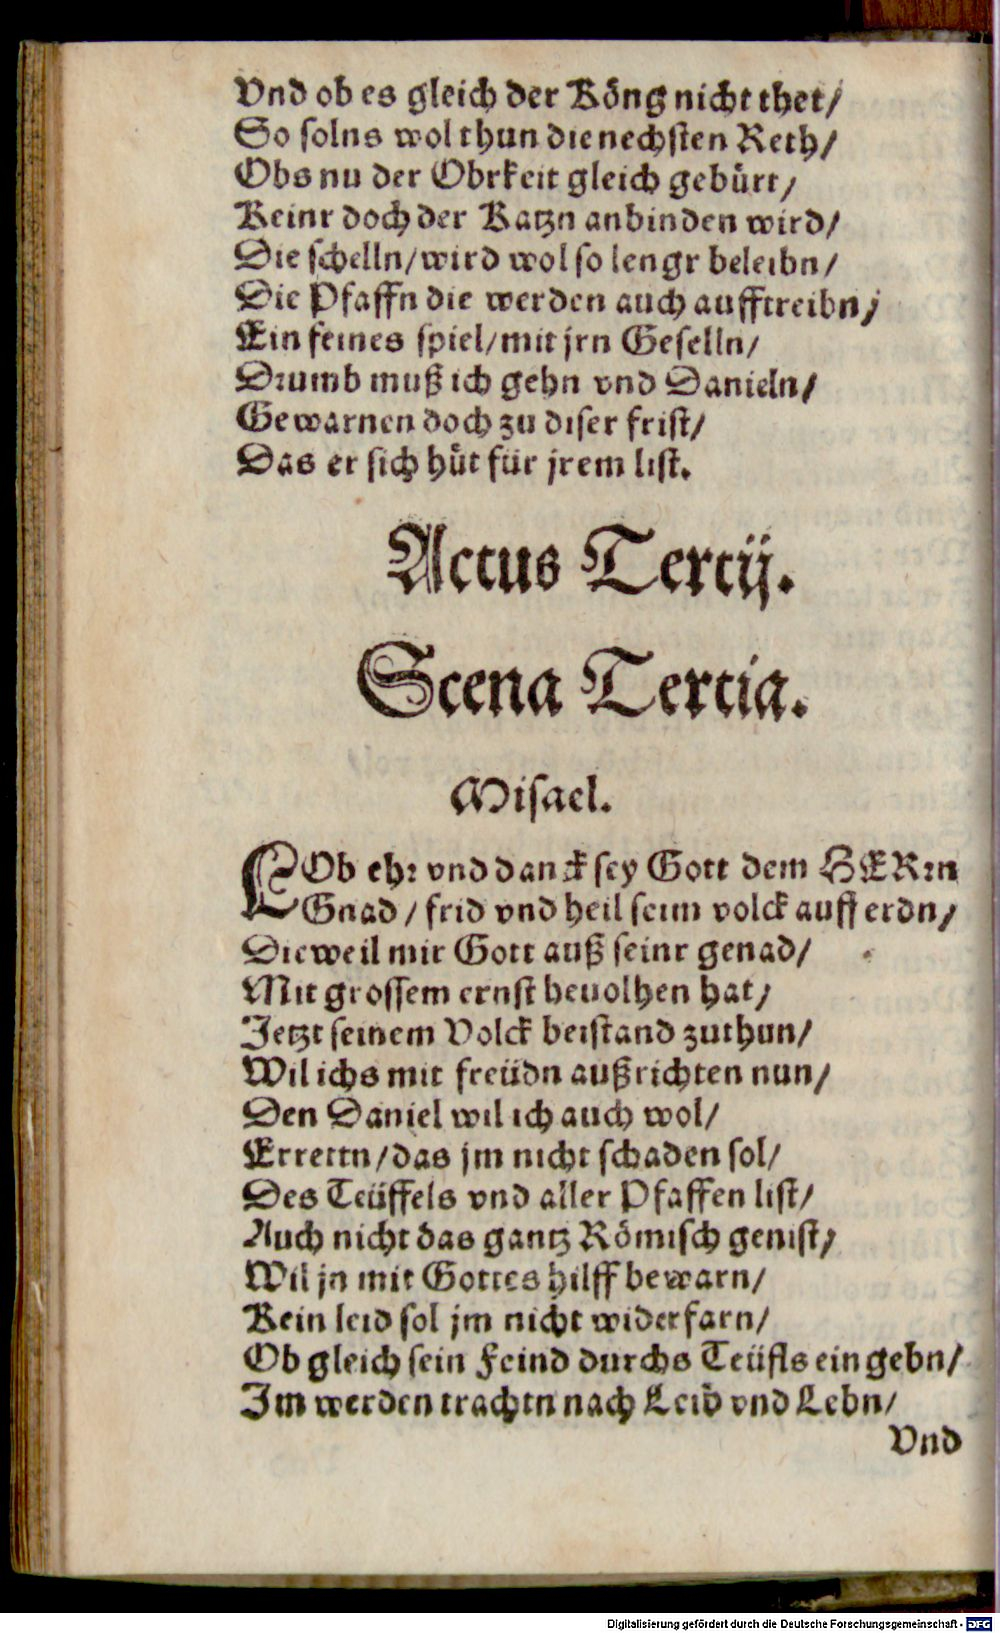 Vnd ob es gleich der Köng nicht thet/
So solns wol thun die nechsten Reth/
Obs nu der Obrkeit gleich gebürt/
Keinr doch der Katzn anbinden wird/
Die schelln/wird wol so lengr beleibn/
Die Pfaffn die werden auch aufftreibn/
Ein feines spiel/mit jrn Geselln/
Drumb muß ich gehn vnd Danieln/
Gewarnen doch zu diser frist/
Das er sich hüt für jrem list.
Actus Tertij.
Scena Tertia.
Misael.
LOb ehr vnd danck sey Gott dem HERrn
Gnad/frid vnd heil seim volck auff erdn/
Dieweil mir Gott auß seinr genad/
Mit grossem ernst beuolhen hat/
Jetzt seinem Volck beistand zuthun/
Wil ichs mit freüdn außrichten nun/
Den Daniel wil ich auch wol/
Errettn/das jm nicht schaden sol/
Des Teüffels vnd aller Pfaffen list/
Auch nicht das gantz Römisch genist/
Wil jn mit Gottes hilff bewarn/
Kein leid sol jm nicht widerfarn/
Ob gleich sein Feind durchs Teüfls eingebn/
Im werden trachtn nach Leib vnd Lebn/
Vnd
Digitalisierung gefördert durch die Deutsche Forschungsgemeinschaft - DFG